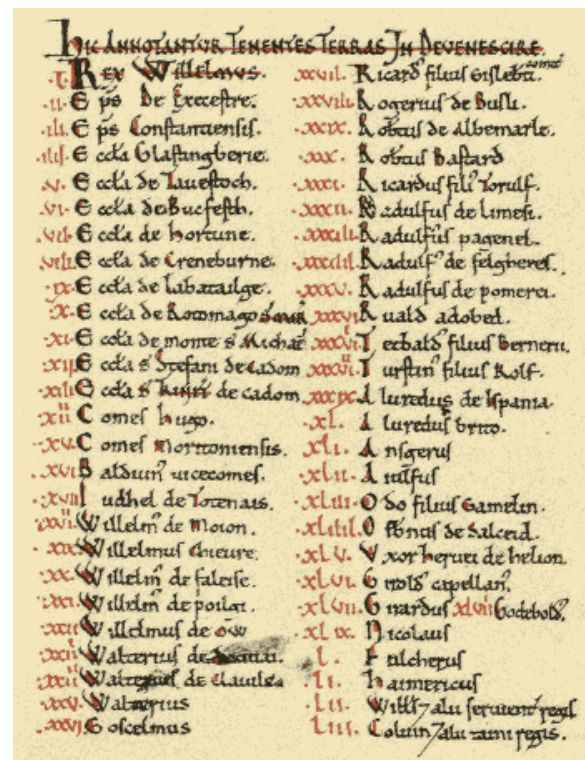 Hic Annotantur Tenentes Terras In Devenescire.
.I. Rex Willelmus.
.II. Eps De Execestre.
.III. Eps Constantiensis.
.IIII. Eccła Glastingberie.
.V. Eccła de Tauestoch.
.VI. Eccła de Bucfesth.
.VII. Eccła de hortune.
.VIII. Eccła de Creneburne.
.IX. Eccła de Labatailge.
.X. Eccła de Rotomago
.XI. Eccła de monte s Michael
.XII. Eccła s Stefani de Cadom
.XIII. Eccła s de cadom
Comes hugo.
.XV. Comes Moritoniensis.
.XVI. Balduin uicecomes.
.XVII. Iudhel de Totenais.
Willelm de Moion.
.XIX. Willelmus Chieure.
.XX. Willelm de faleise.
.XXI. Willelm de poilgi.
.XXII. Willelmus de ow
Walterius de
Walterius de Clauile
.XXV. Walterius
.XXVI. Goscelmus
.XXVII. Ricard filius Gisleb̃ti. comet
.XXVIII. Rogerius de Busli.
.XXIX. Rotbtus de Albemarle.
.XXX. Rotbtus Bastard
.XXXI. Ricardus fili Torulf.
.XXXII. Radulfus de limesi.
.XXXIII. Radulfus pagenel.
.XXXIIII. Radulf de felgheres.
.XXXV. Radulfus de pomerei.
.XXXVI. Ruald adobed.
Tecbald filius Berneru.
Turstin filius Rolf.
.XXXIX. Aluredus de Ispania.
.XL. Aluredus brito.
.XLI. Ansgerus
.XLII. Aiulfus
.XLIII. Odo filius Gamelin.
.XLIIII. Osbnus de Salceid.
.XLV. Vxor heruei de helion.
.XLVI. Girold capellan.
.XLVII. Girardus XLVIII Godebold.
.XLIX. Nicolaus
.L. Fulcherus
.LI. haimericus
.LII. Willł 7 alii seruient regis
.LIII. Coluin 7 alii taini regis.